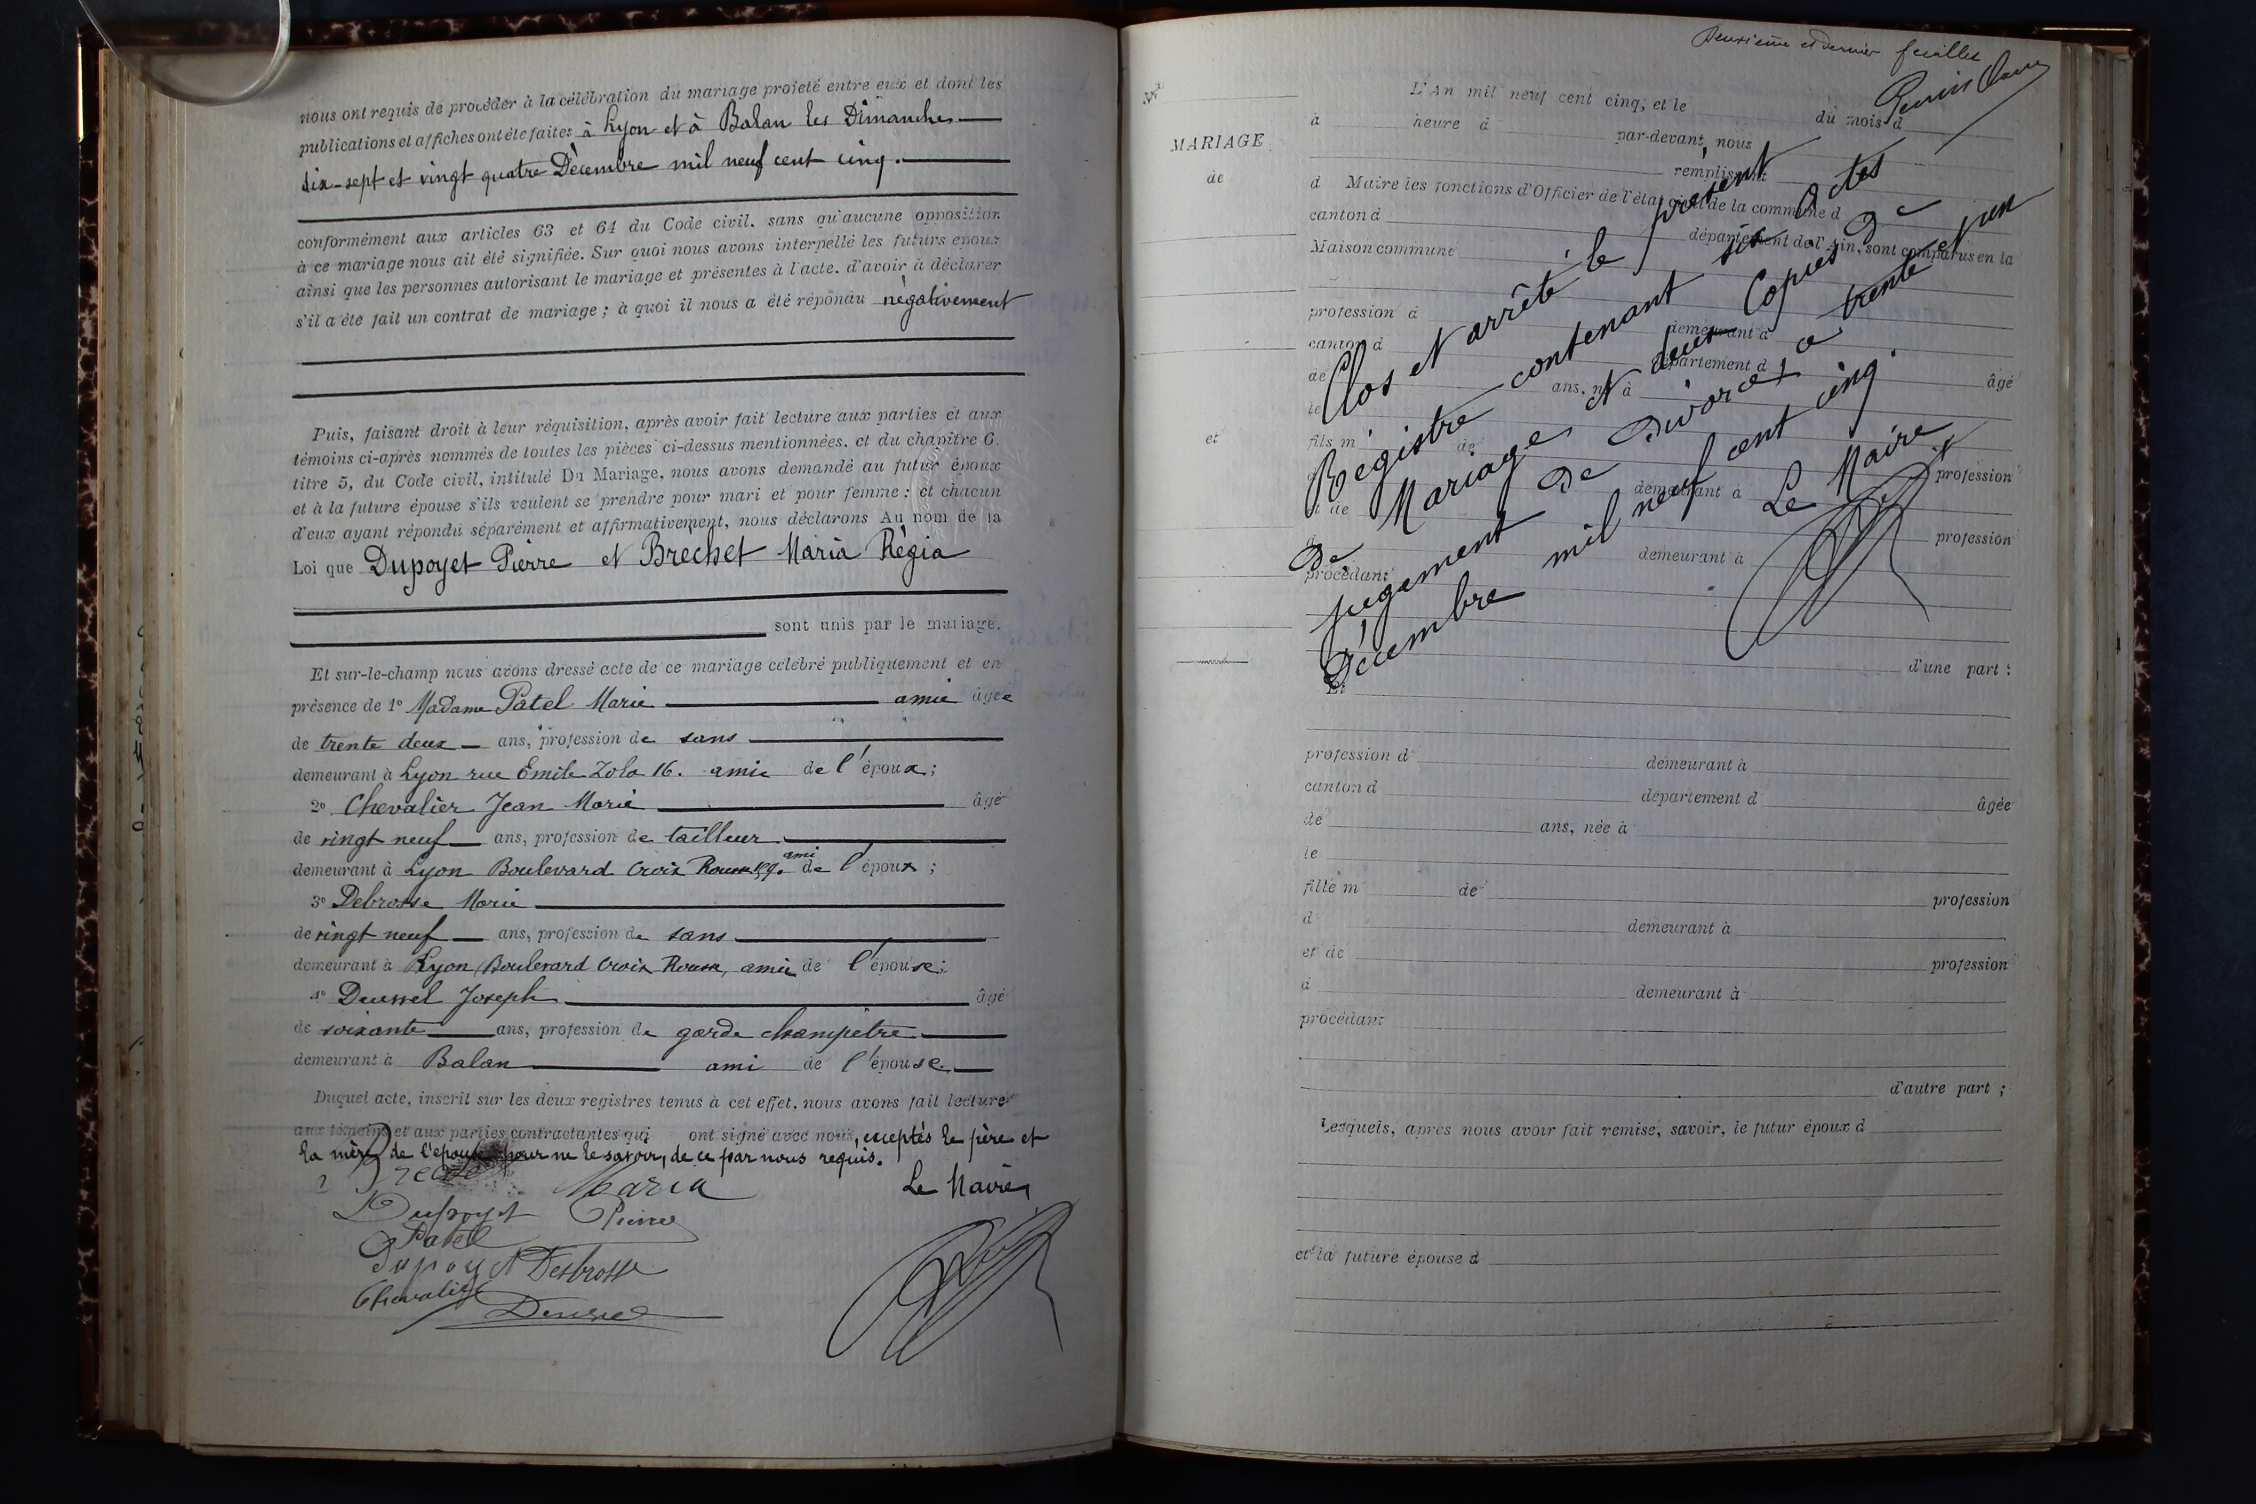 nous ont requis de procéder à la célébration du mariage projeté entre eux et dont les
publications et affiches ont été faites à Lyon et à Balan les Dimanches
dix-sept et vingt quatre Décembre mil neuf cent cinq.
conformément aux articles 63 et 64 du Code civil, sans qu'aucune opposition
à ce mariage nous ait été signifiée. Sur quoi nous avons interpellé les futurs époux
ainsi que les personnes autorisant le mariage et présentes à l'acte, d'avoir à déclarer
s'il a été fait un contrat de mariage; à quoi il nous a été répondu négativement
Puis, faisant droit à leur réquisition, après avoir fait lecture aux parties et aux
témoins ci-après nommés de toutes les pièces ci-dessus mentionnées, et du chapitre 6,
titre 5, du Code civil, intitulé Du Mariage, nous avons demandé au futur époux
et à la future épouse s'ils veulent se prendre pour mari et pour femme: et chacun
d'eux ayant répondu séparément et affirmativement, nous déclarons Au nom de la
Loi que Dupoyet Pierre et Bréchet Maria Régia
sont unis par le mariage.
Et sur-le-champ nous avons dressé acte de ce mariage célébré publiquement et en
présence de 1° Madame Patel Marie amie âgée
de trente deux ans, profession de sans
demeurant à Lyon rue Emile Zola 16. amie de l'époux;
2° Chevalier Jean Marie âgé
de vingt neuf ans, profession de tailleur
demeurant à Lyon Boulevard Croix Rousse ami de l'époux;
3° Debrosse Marie
de vingt neuf ans, profession de sans
demeurant à Lyon, Boulevard Croix Rousse, amie de l'épouse;
4° Deussel Joseph âgé
de soixante ans, profession de garde champêtre
demeurant à Balan ami de l'épouse
Duquel acte, inscrit sur les deux registres tenus à cet effet, nous avons fait lecture
aux témoins et aux parties contractantes qui ont signé avec nous, exceptés le père et
la mère de l'epouse pour ne le savoir, de ce par nous requis.
Maria
Le Maire,
Dupoyet Pierre
Patel
Dupoyet Desbrosse
Chevalier
Deussel
Deuxième et dernier feuillet
N°
MARIAGE
de
et
L'An mil neuf cent cinq, et le du mois d
à heure d par-devant nous
remplissant
d Maire les fonctions d'Officier de l'état civil de la commune d
canton d département de l'Ain, sont comparus en la
Maison commune
profession d demeurant à
canton d département d âgé
de ans, né à
le
fils m de profession
d demeurant à
et de profession
d demeurant à
procédant
d'une part:
Clos et arrêté le présent
Régistre contenant six Actes
de Mariage et deux Copies de
jugement de Divorce, a trente et un
Décembre mil neuf cent cinq.
Le Maire
Et
profession d demeurant à
canton d département d âgée
de ans, née à
le
fille m de profession
d demeurant à
et de profession
d demeurant à
procédant
d'autre part;
Lesquels, après nous avoir fait remise, savoir, le futur époux d
et la future épouse d